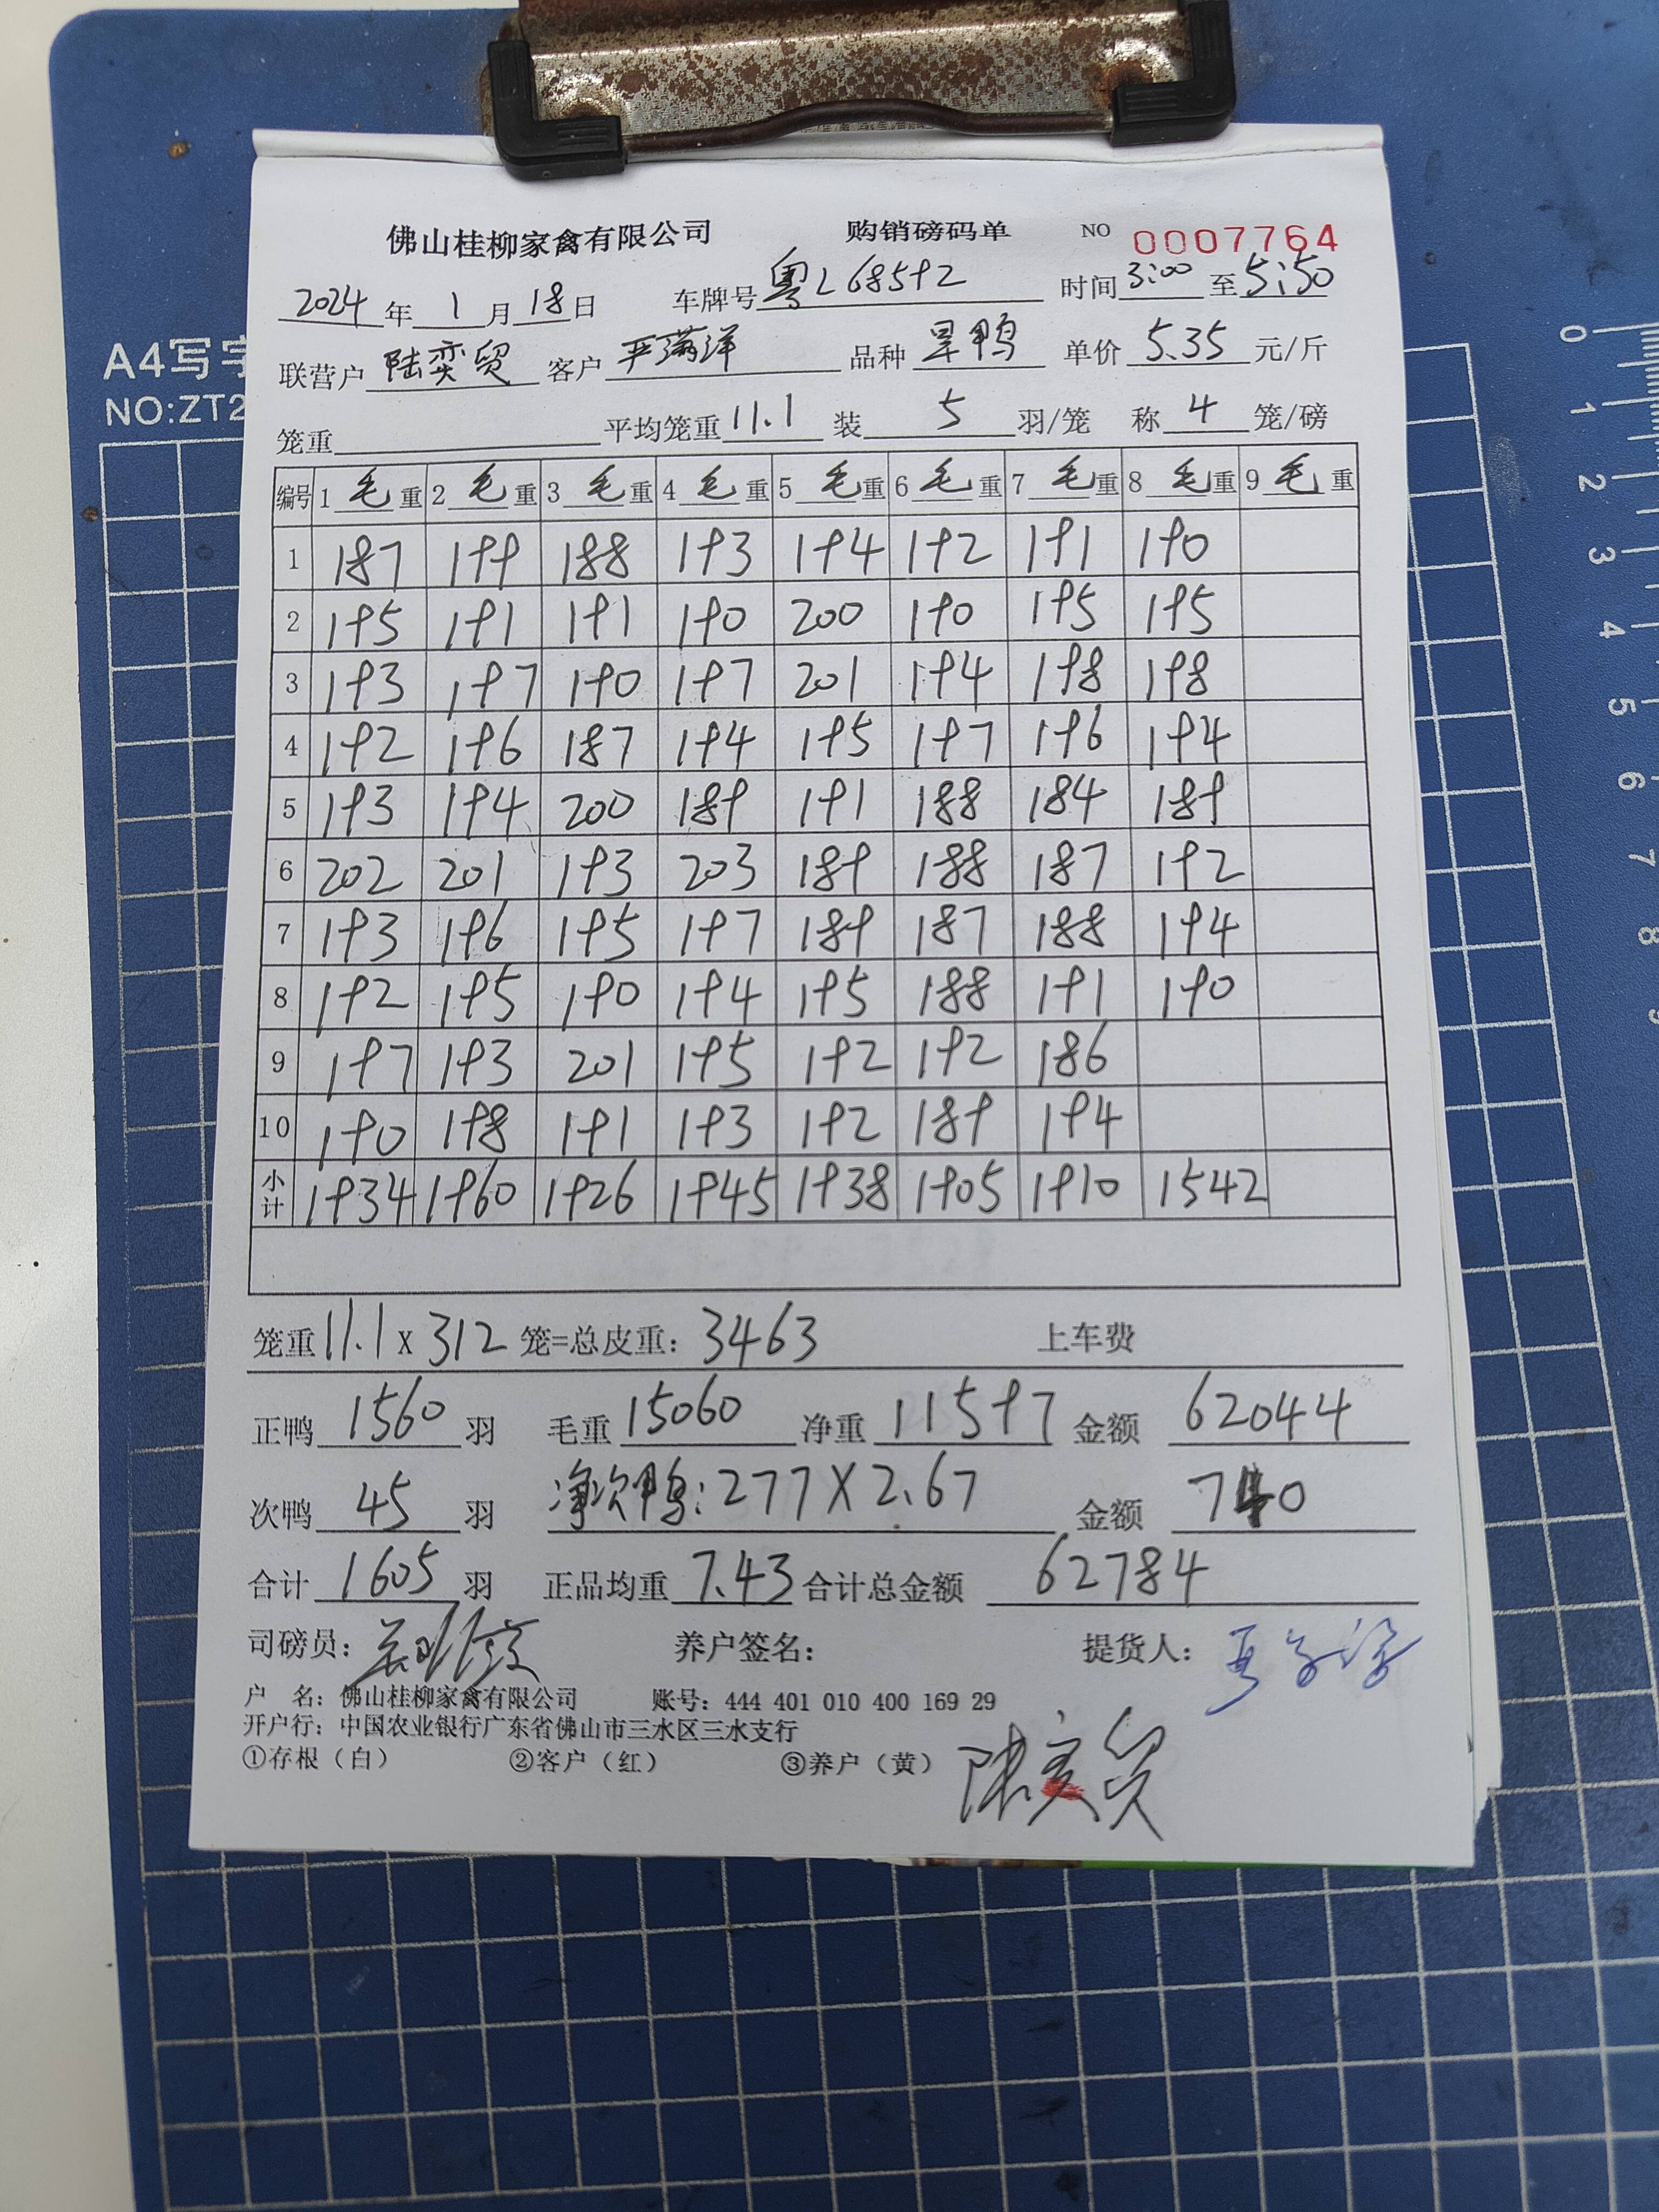 佛山桂柳家禽有限公司 购销磅码单 NO 0007764
2024年1月18日 车牌号 粤L68592 时间 3:00 至 5:50
联营户 陆奕贸 客户 严满洋 品种 旱鸭 单价 5.35 元/斤
笼重 平均笼重 11.1 装 5 羽/笼 称 4 笼/磅
编号 1 毛重 2 毛重 3 毛重 4 毛重 5 毛重 6 毛重 7 毛重 8 毛重 9 毛重
1 187 199 188 193 194 192 191 190
2 195 191 191 190 200 190 195 195
3 193 197 190 197 201 194 198 198
4 192 196 187 194 195 197 196 194
5 193 194 200 189 191 188 184 189
6 202 201 193 203 189 188 187 192
7 193 196 195 197 189 187 188 194
8 192 195 190 194 195 188 191 190
9 197 193 201 195 192 192 186
10 190 198 191 193 192 189 194
小计 1934 1960 1926 1945 1938 1905 1910 1542
笼重 11.1 x 312 笼=总皮重: 3463 上车费
正鸭 1560 羽 毛重 15060 净重 11597 金额 62044
次鸭 45 羽 净次鸭: 277 X 2.67 金额 740
合计 1605 羽 正品均重 7.43 合计总金额 62784
司磅员: 养户签名: 提货人:
户 名: 佛山桂柳家禽有限公司 账号: 444 401 010 400 169 29
开户行: 中国农业银行广东省佛山市三水区三水支行
①存根（白） ②客户（红） ③养户（黄） 陆奕贸
A4写字
NO:ZT2
0
1
2
3
4
5
6
7
8
9